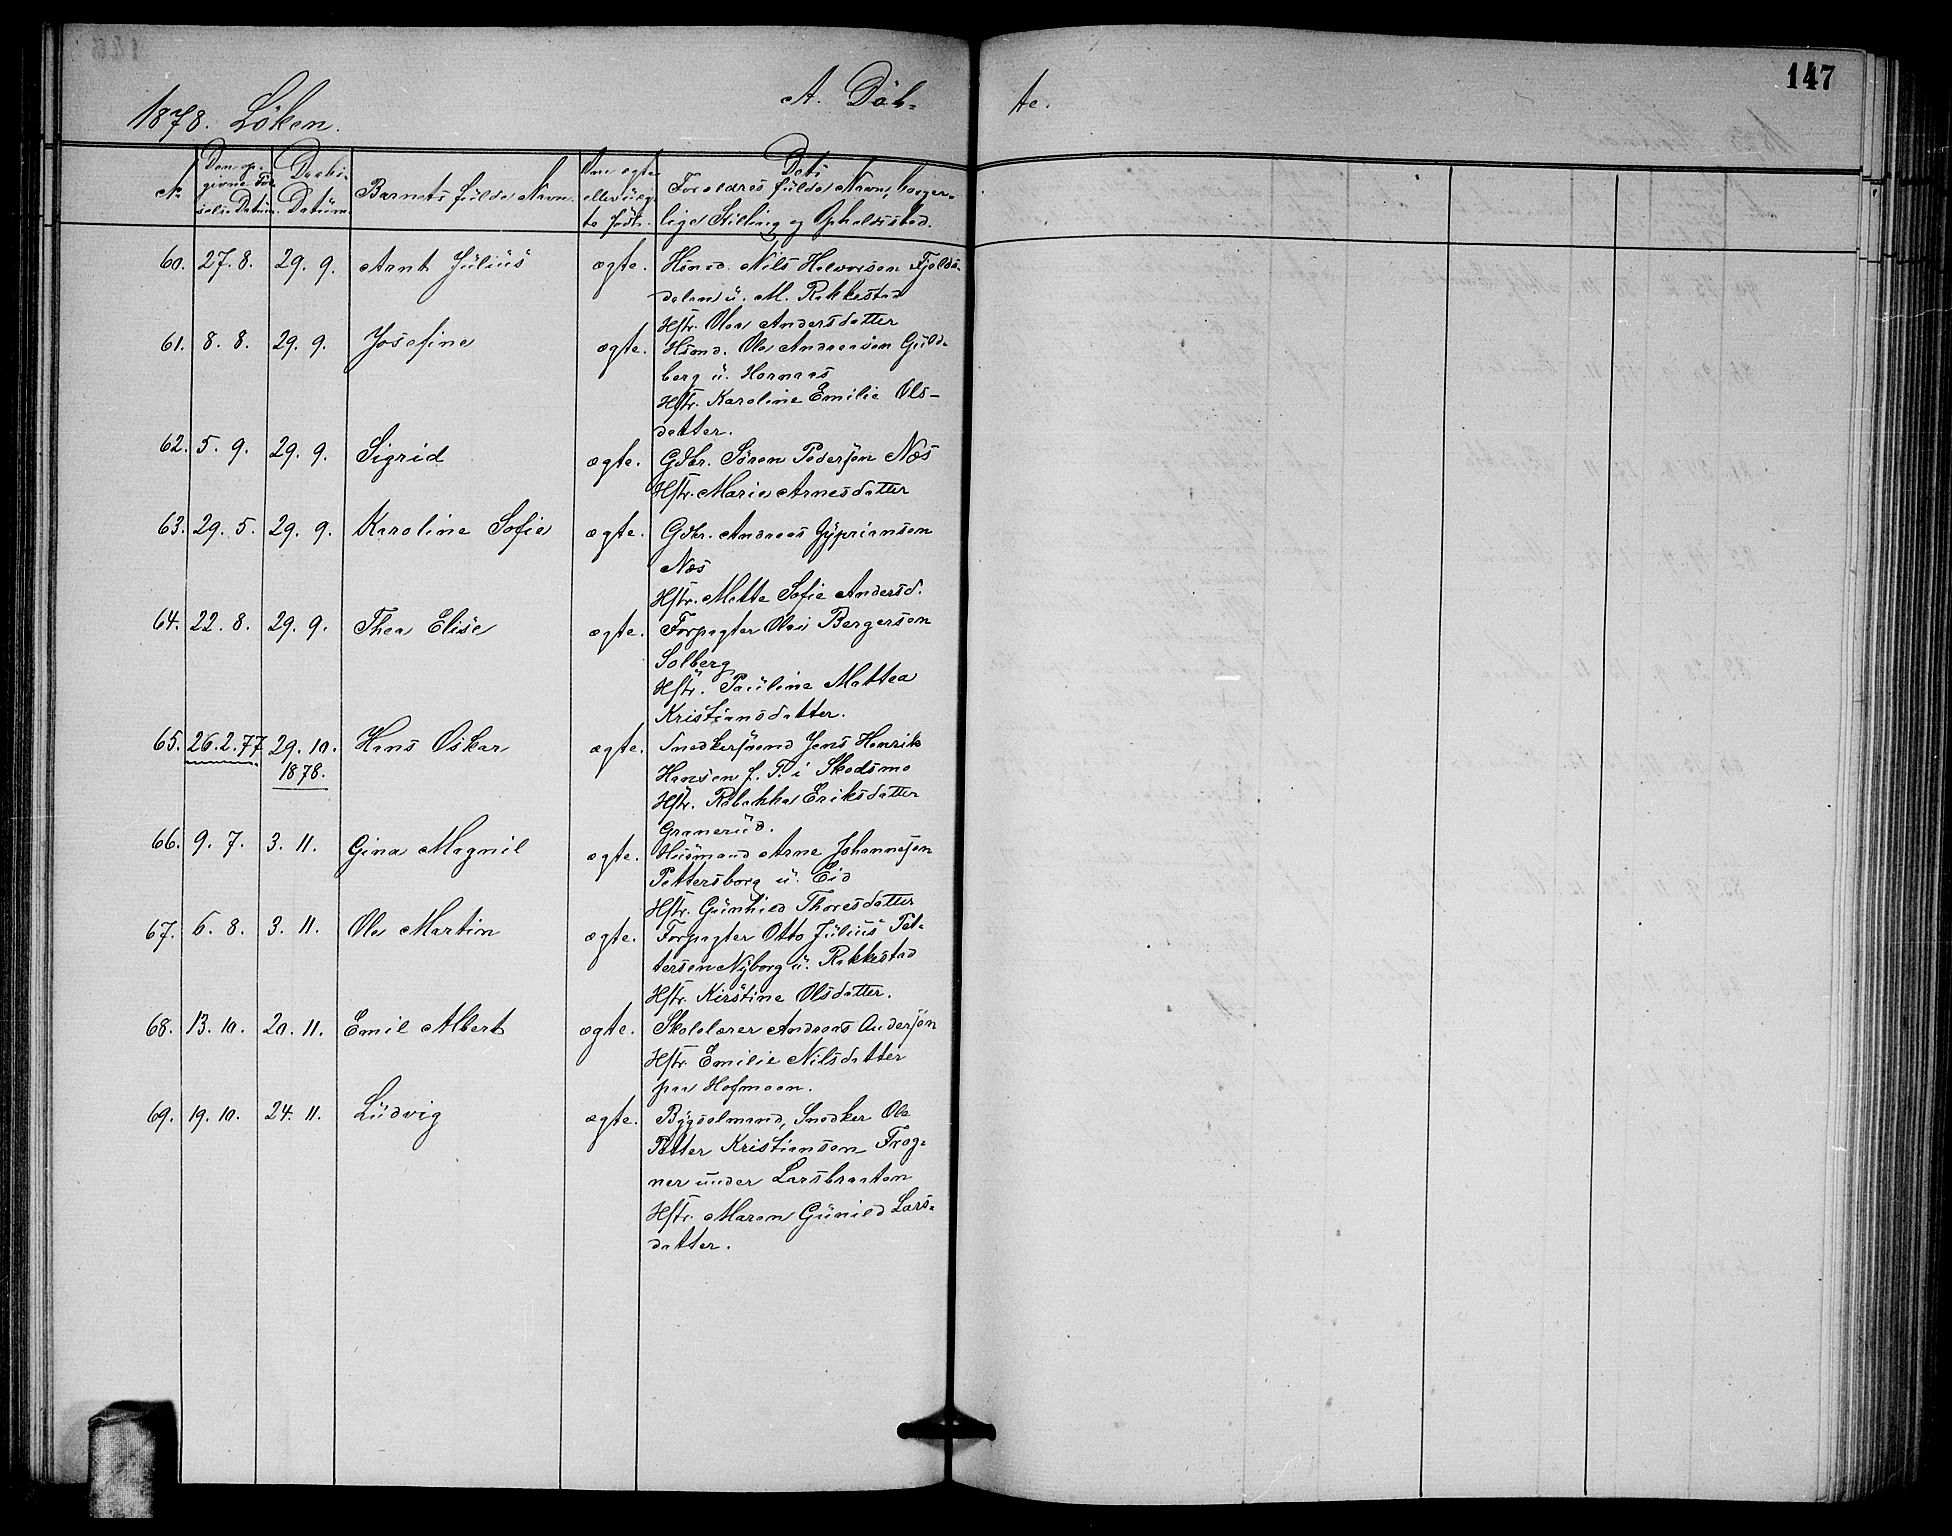 147
1878. Löken.
A. Döb-
te.
No
Den op-
givne Fød-
sels Datum.
Daabs-
Datum.
Barnets fulde Navn.
Om ægte
eller uæg-
te født.
Dets
Forældres fulde Navn, borger-
lige Stilling og Opholdssted.
60. 27. 8. 29. 9. Arnt Julius ægte. Hsmd. Nils Halvorsen Fjelds-
dalen u. M. Rakkestad
Hstr. Olea Andersdatter
61. 8. 8. 29. 9. Josefine ægte. Hsmd. Ole Andreassen Guld-
berg u. Hornæs
Hstr. Karoline Emilie Ols-
datter.
62. 5. 9. 29. 9. Sigrid ægte. Gdbr. Sören Pedersen Næs
Hstr. Marie Arnesdatter
63. 29. 5. 29. 9. Karoline Sofie ægte. Gdbr. Andreas Gyprianson
Næs
Hstr. Mette Sofie Andersd.
64. 22. 8. 29. 9. Thea Elise ægte. Forpagter Olai Bergersen
Solberg
Hstr. Pauline Mattea
Kristiansdatter.
65. 26. 2. 77 29. 10. Hans Oskar ægte. Snedkersvend Jens Henrik
1878.
Hansen f. T. i Skedsmo
Hstr. Rebekka Eriksdatter
Granerud.
66. 9. 7. 3. 11. Gina Magnil ægte. Husmand Arne Johannesen
Pettersborg u. Eid
Hstr. Gunhild Thoresdatter
67. 6. 8. 3. 11. Ole Martin ægte. Forpagter Otto Julius Pet-
tersen Nyborg u. Rakkestad
Hstr. Kirstine Olsdatter.
68. 13. 10. 20. 11. Emil Albert ægte. Skolelærer Andreas Andersen
Hstr. Emilie Nilsdatter
paa Hofmoen.
69. 19. 10. 24. 11. Ludvig ægte. Bygselmand, Snedker Ole
Petter Kristiansen Frog-
ner under Larsbraaten
Hstr. Maren Gunild Lars-
datter.